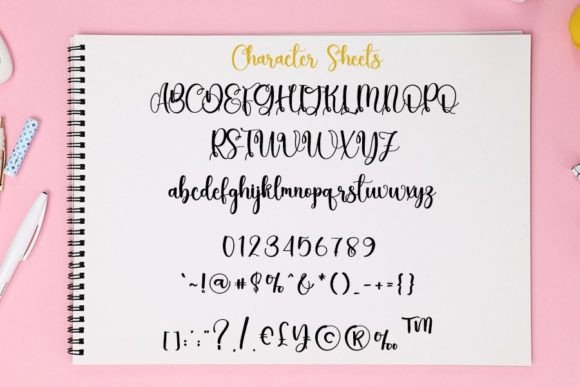 Character Sheets
ABCDEFGHIJKLMNOPQ
RSTUVWXYZ
abcdefghijklmnopqrstuvwxyz
0123456789
`~!@#$%^&*()_-+={}
[]:;"?/.€£¥©®‰™